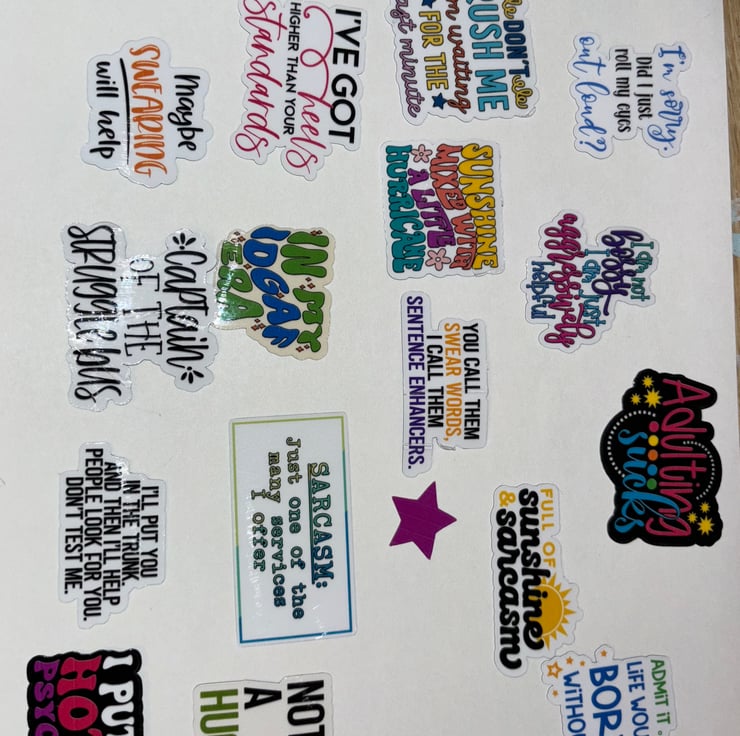 I'm sorry,
Did I just
roll my eyes
out loud?
I am not
bossy
I am just
aggressively
helpful
Adulting
sucks
FULL OF
sunshine
& sarcasm
ADMIT IT
LIFE WOU
BOR
WITHOU
DON'T
USH ME
m waiting
FOR THE
ast minute
SUNSHINE
MIXED WITH
A LITTLE
HURRICANE
YOU CALL THEM
SWEAR WORDS,
I CALL THEM
SENTENCE ENHANCERS.
I'VE GOT
heels
HIGHER THAN YOUR
standards
IN MY
IDGAF
ERA
SARCASM:
Just one of the
many services
I offer
NOT
A
HU
Maybe
SWEARING
will help
Captain
OF THE
STRUGGLE BUS
I'LL PUT YOU
IN THE TRUNK
AND THEN I'LL HELP
PEOPLE LOOK FOR YOU.
DON'T TEST ME.
I PU
HO
PSYC